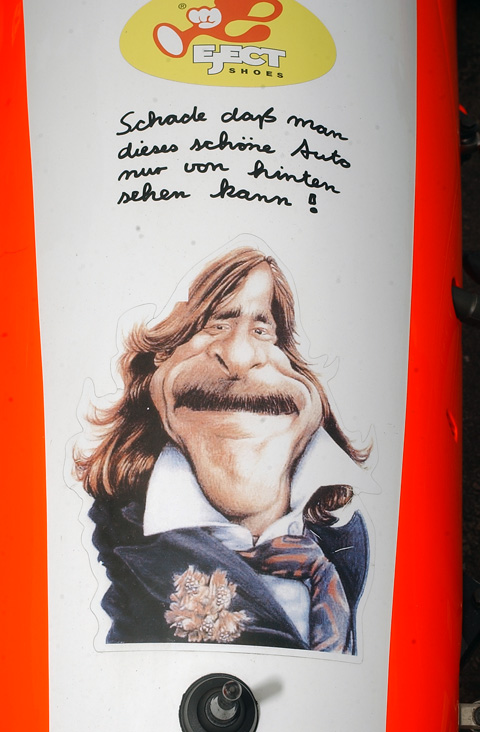 ®
EJECT
SHOES
Schade daß man
dieses schöne Auto
nur von hinten
sehen kann!